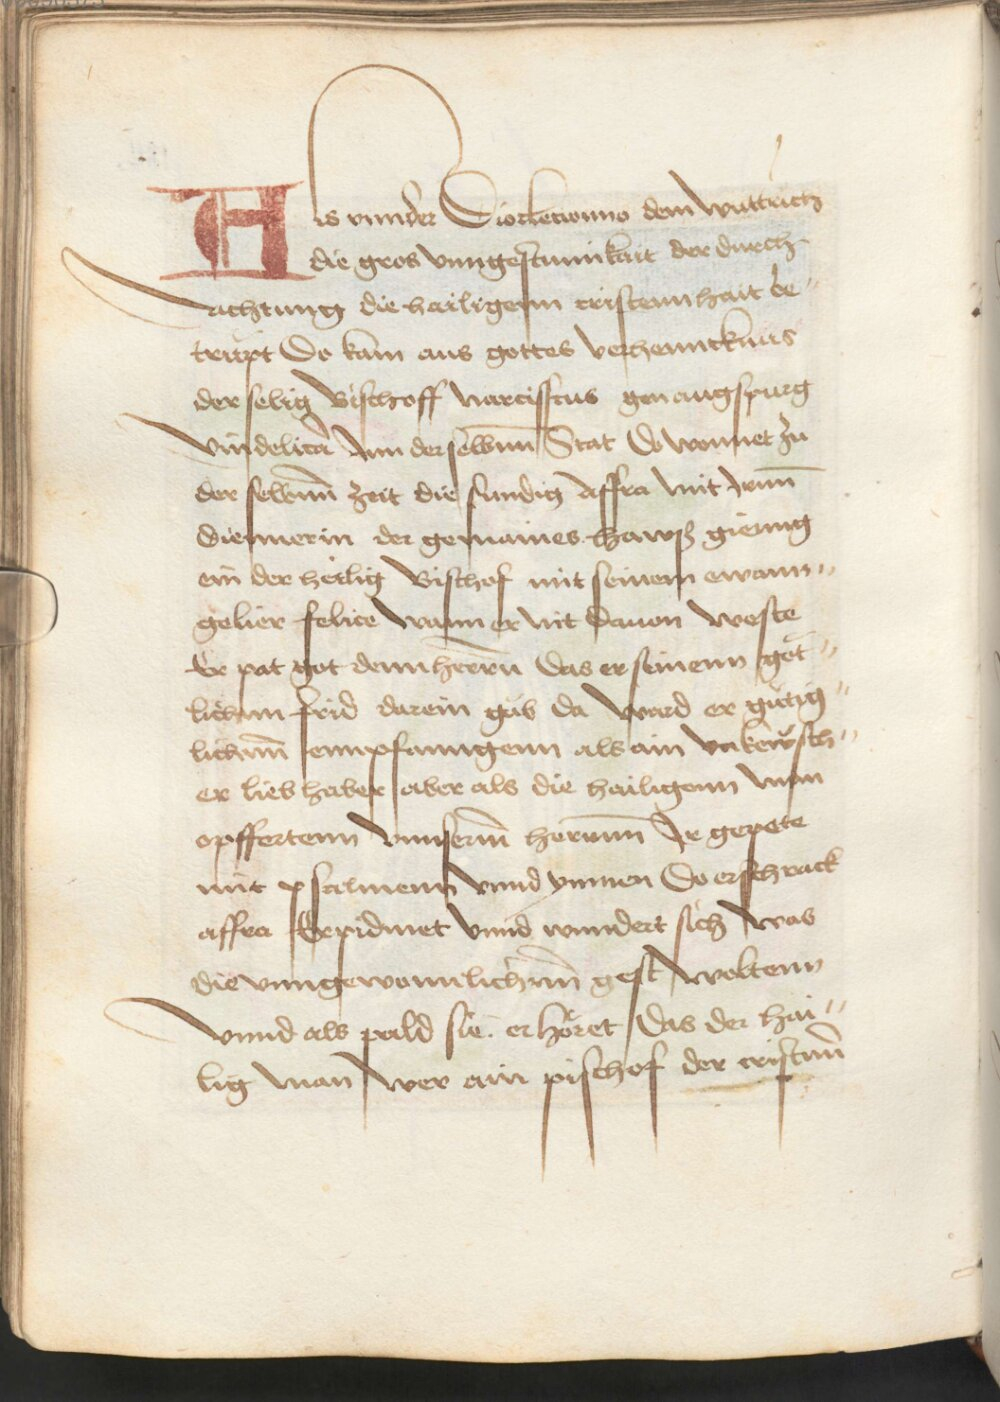 Als vnnder Diocletionno dem wuttrich
die gros vnngestuimkait der durch¬
achtung die hailigenn cristennhait be¬
trupt Do kam aus gottes verhenncknus
der selig Bischoff Narcisscus gen augspurg
Vindelica Jnn der selbnn Stat Do wonnet zu
der selbnn zeit die sundig Affra mit Jrnn
diennerin der gemaines hawss gienng
ein der heilig Bischof mit seinem ewann¬
gelier felice wann er nit dauon weste
Er pat got denn herrn das er seinenn göt¬
lichnn frid darein gäb da ward er gütig¬
lichnn emnpfanngenn als ain vnkewsch¬
er liebhaber aber als die hailigenn man
opffertenn vnnsernn herrnn Jr gepete
mit psalmenn vnnd ymnen Do erschrack
affra Erpidmet vnnd wundert sich was
die vnngewonnlichnn gest woltenn
vnnd als pald sie erhöret das der hai¬
lig man wer ain pischof der cristnn